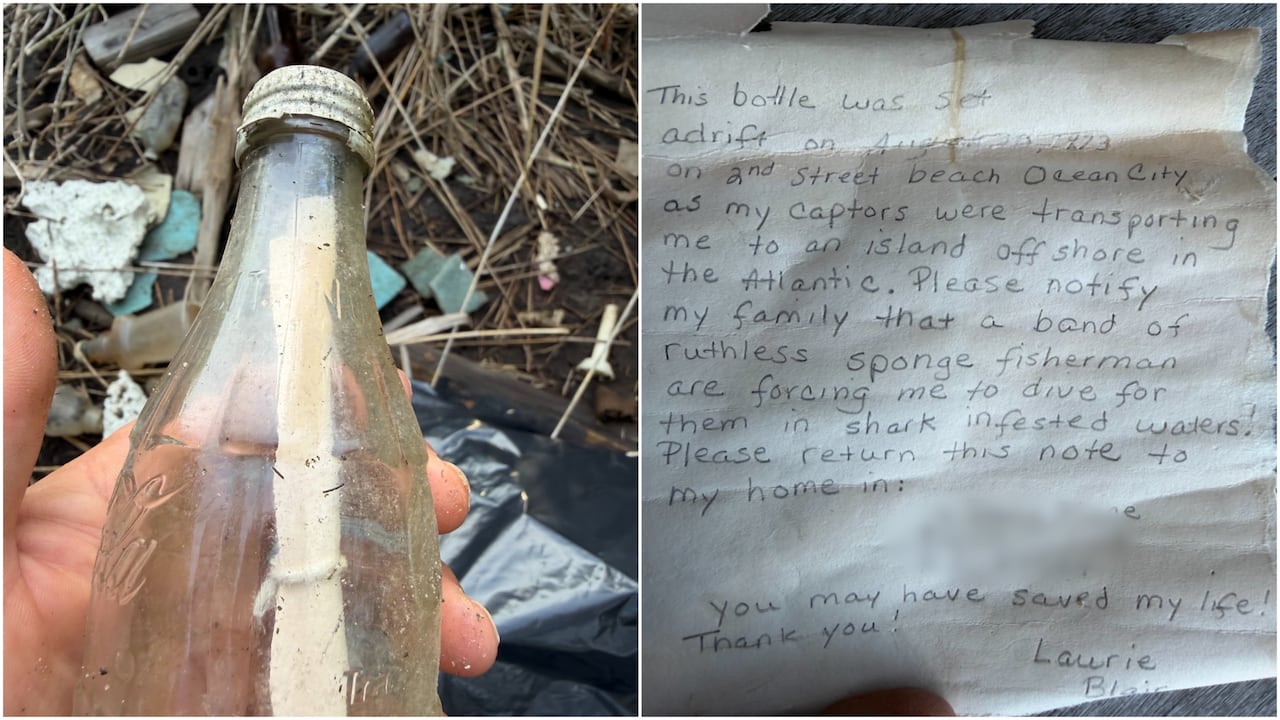 This bottle was set
adrift on August
on 2nd street beach Ocean City
as my captors were transporting
me to an island off shore in
the Atlantic. Please notify
my family that a band of
ruthless sponge fisherman
are forcing me to dive for
them in shark infested waters!
Please return this note to
my home in:
you may have saved my life!
Thank you!
Laurie
Blair